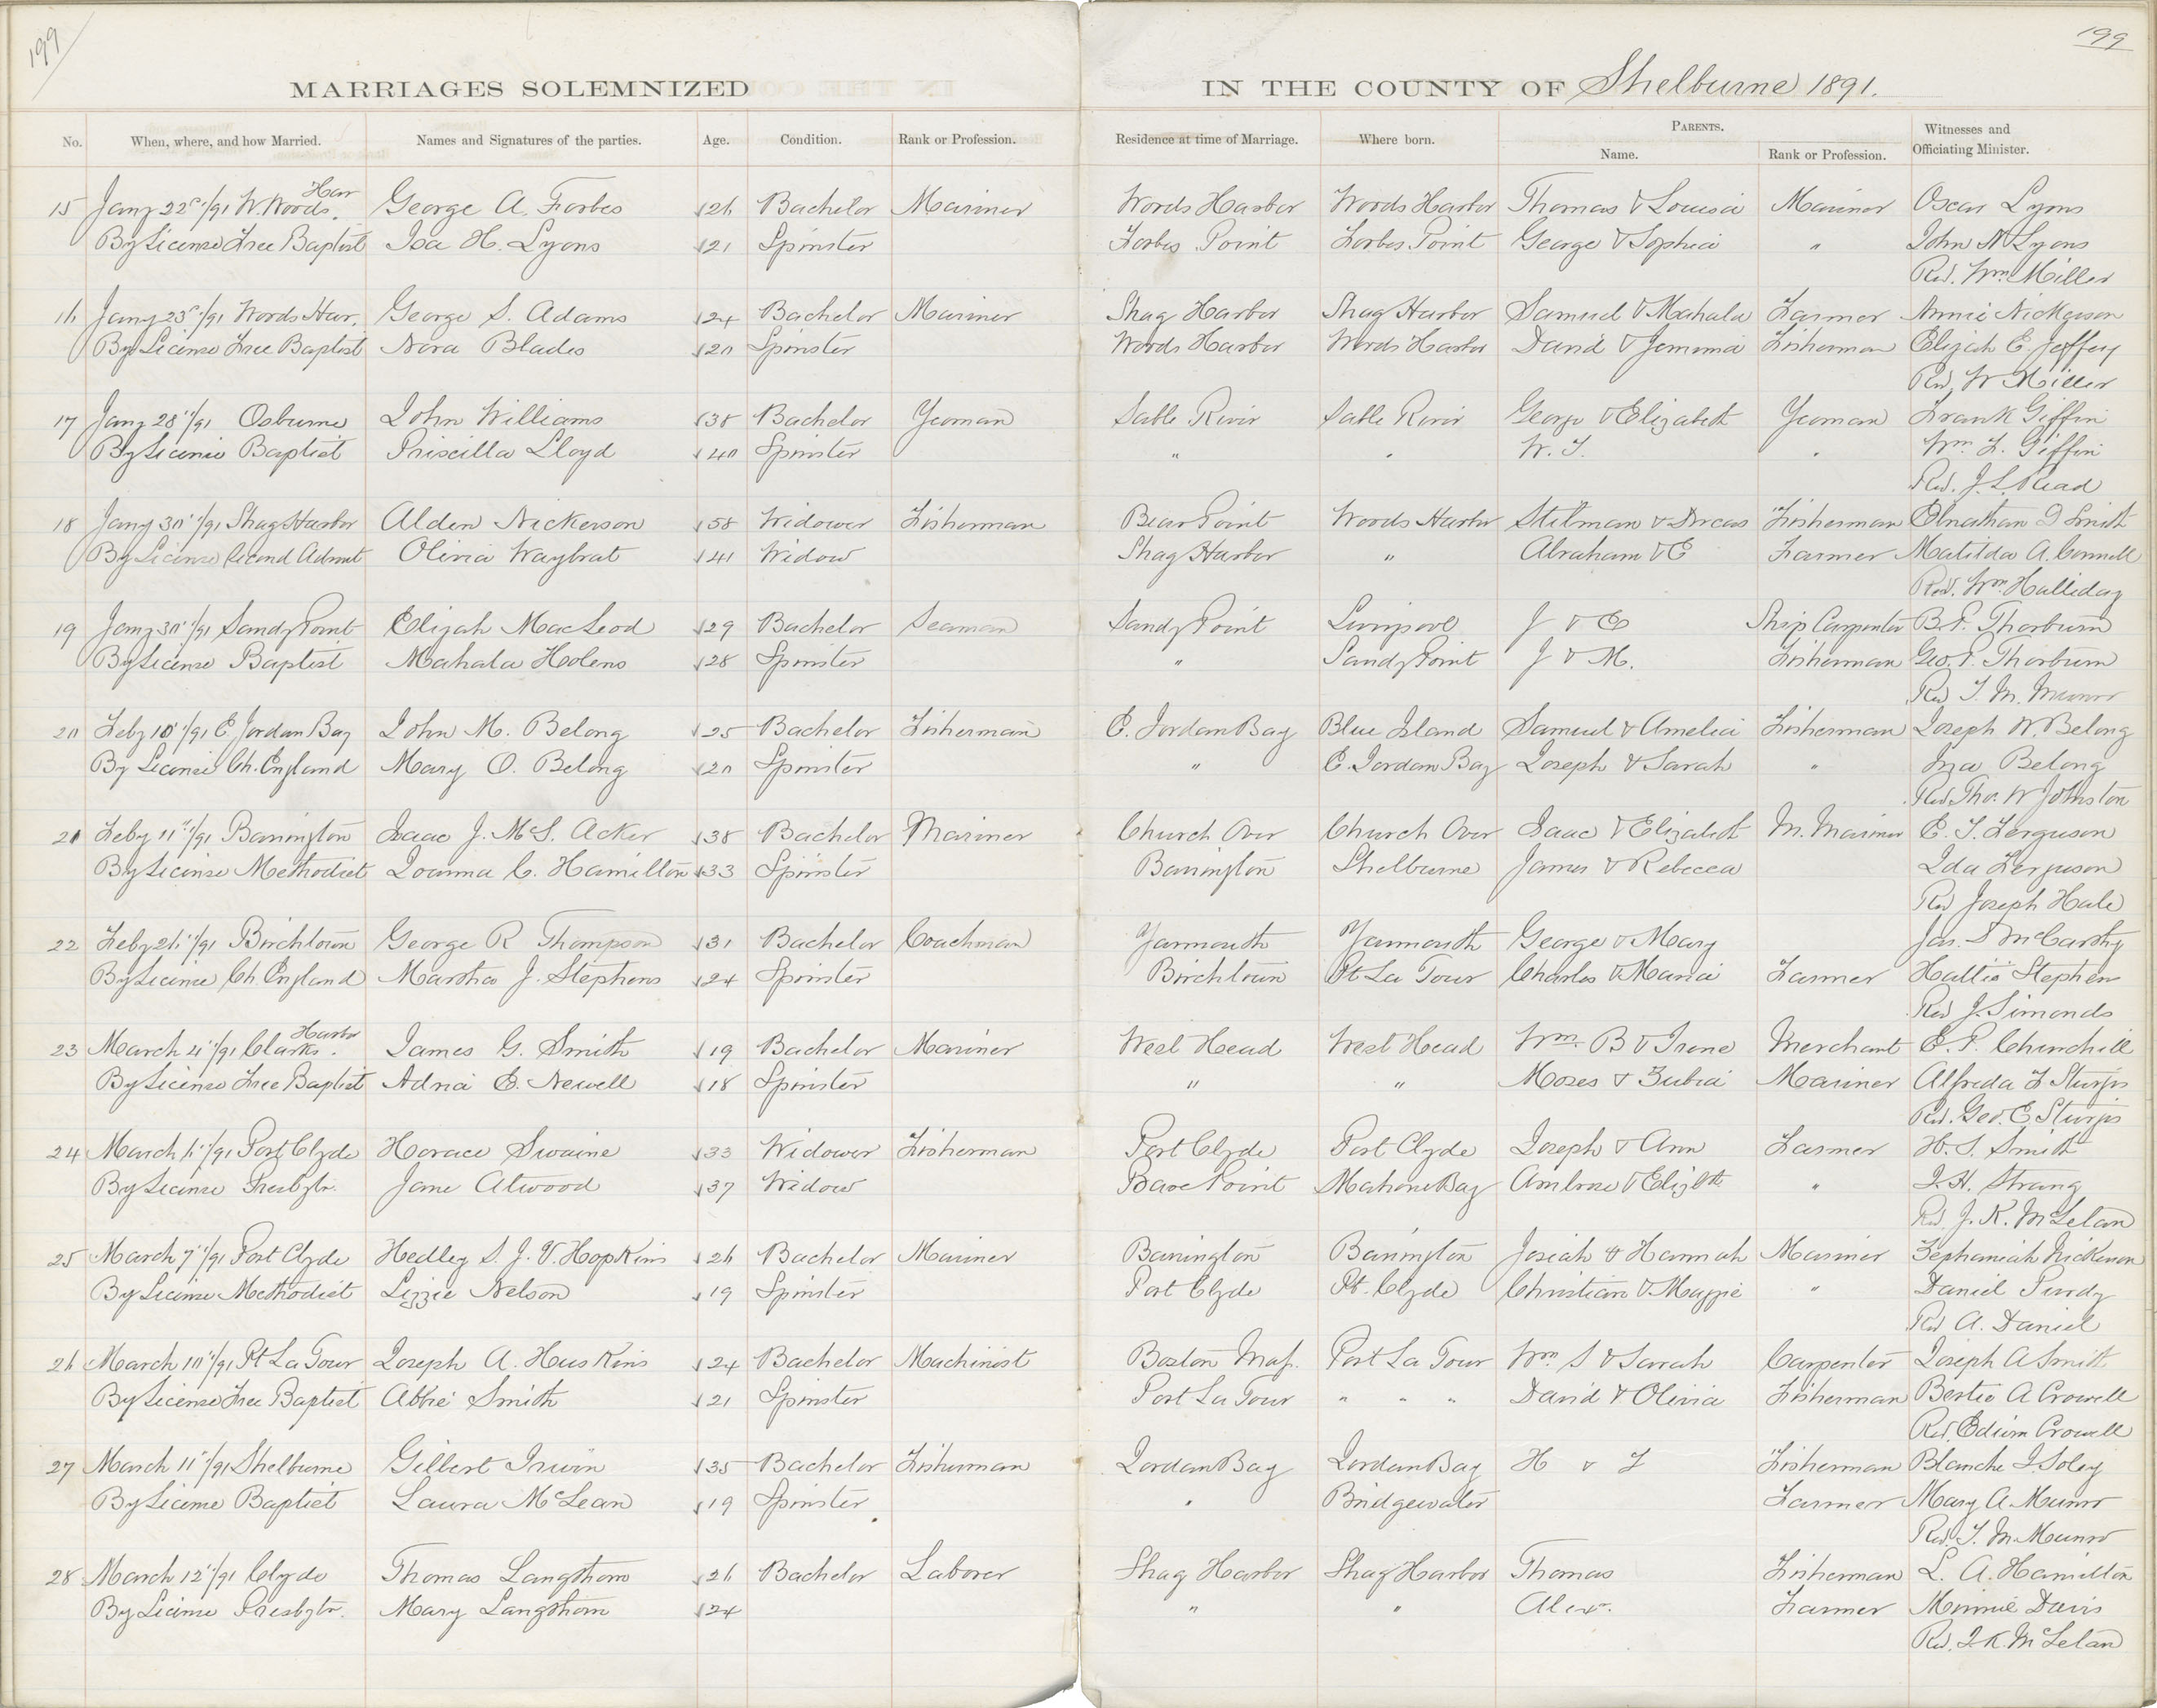 199
199
MARRIAGES SOLEMNIZED IN THE COUNTY OF Shelburne 1891.
No. When, where, and how Married. Names and Signatures of the parties. Age. Condition. Rank or Profession. Residence at time of Marriage. Where born. PARENTS. Name. Rank or Profession. Witnesses and Officiating Minister.
15 Jany 22 /91 W. Woods Har. George A. Forbes 26 Bachelor Mariner Woods Harbor Woods Harbor Thomas & Louisa Mariner Oscar Lyons
By License Free Baptist Isa H. Lyons 21 Spinster Forbes Point Forbes Point George & Sophia " John N Lyons
Rev. Wm. Miller
16 Jany 23 /91 Woods Har. George S. Adams 24 Bachelor Mariner Shag Harbor Shag Harbor Samuel & Mahala Farmer Annie Nickerson
By License Free Baptist Nora Blades 20 Spinster Woods Harbor Woods Harbor David & Jemima Fisherman Elizah E. Jeffery
Rev. W Miller
17 Jany 28 /91 Osburne John Williams 38 Bachelor Yeoman Sable River Sable River George & Elizabeth Yeoman Frank Giffin
By License Baptist Priscilla Lloyd 40 Spinster " " W. T. " Wm. F. Giffin
Rev. J. L. Read
18 Jany 30 /91 Shag Harbor Alden Nickerson 58 Widower Fisherman Bear Point Woods Harbor Stilman & Dorcas Fisherman Elnathan D Smith
By License Second Advent Olivia Waybrat 41 Widow Shag Harbor " Abraham & E Farmer Matilda A. Connell
Rev. Wm. Halliday
19 Jany 30 /91 Sandy Point Elijah MacLeod 29 Bachelor Seaman Sandy Point Liverpool J & E Ship Carpenter B. F. Thorburn
By License Baptist Mahala Holens 28 Spinster " Sandy Point J & M. Fisherman Geo. P. Thorburn
Rev T. M. Munro
20 Feby 10 /91 E. Jordan Bay John M. Belong 25 Bachelor Fisherman E. Jordan Bay Blue Island Samuel & Amelia Fisherman Joseph W. Belong
By License Ch. England Mary O. Belong 20 Spinster " E. Jordan Bay Joseph & Sarah " Ina Belong
Rev. Tho. W Johnston
21 Feby 11 /91 Barrington Isaac J. McS. Acker 38 Bachelor Mariner Church Over Church Over Isaac & Elizabeth M. Mariner E. T. Ferguson
By License Methodist Joanna C. Hamilton 33 Spinster Barrington Shelburne James & Rebecca Ida Ferguson
Rev Joseph Hale
22 Feby 26 /91 Birchtown George R Thompson 31 Bachelor Coachman Yarmouth Yarmouth George & Mary Jas. S McCarthy
By License Ch. England Martha J. Stephens 24 Spinster Birchtown Pt La Tour Charles & Maria Farmer Hattie Stephen
Rev J. Simonds
23 March 4 /91 Clarks Harbor. James G. Smith 19 Bachelor Mariner West Head West Head Wm. B & Irene Merchant E. P. Churchill
By License Free Baptist Adria E. Newell 18 Spinster " " Moses & Zubia Mariner Alfreda F Sturgis
Rev. Geo. E. Sturgis
24 March 6 /91 Port Clyde Horace Swaine 33 Widower Fisherman Port Clyde Port Clyde Joseph & Ann Farmer H. S. Smith
By License Presbytr. Jane Atwood 37 Widow Bare Point Mahone Bay Ambrose & Elizbth " I. H. Strang
Rev. J. K. McLelan
25 March 7 /91 Port Clyde Hedley S. J. V. Hopkins 26 Bachelor Mariner Barrington Barrington Josiah & Hannah Mariner Zephaniah Nickerson
By License Methodist Lizzie Nelson 19 Spinster Port Clyde Pt. Clyde Christian & Maggie " Daniel Purdy
Rev A. Daniel
26 March 10 /91 Pt La Tour Joseph A. Huskins 24 Bachelor Machinist Boston Mass. Port La Tour Wm S & Sarah Carpenter Joseph A Smith
By License Free Baptist Abbie Smith 21 Spinster Port La Tour " " " David & Olivia Fisherman Bertie A Crowell
Rev. Edwin Crowell
27 March 11 /91 Shelburne Gilbert Irwin 35 Bachelor Fisherman Jordan Bay Jordan Bay H & F Fisherman Blanche I. Soley
By License Baptist Laura McLean 19 Spinster " Bridgewater Farmer Mary A. Munro
Rev. T. M. Munro
28 March 12 /91 Clyde Thomas Langthorn 26 Bachelor Laborer Shag Harbor Shag Harbor Thomas Fisherman L. A. Hamilton
By License Presbytr. Mary Langthorn 24 " " Alexr. Farmer Minnie Davis
Rev. J. K. McLelan